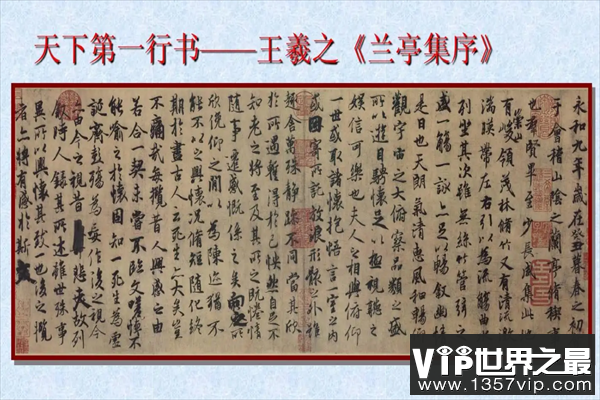 天下第一行书——王羲之《兰亭集序》
永和九年歲在癸丑暮春之初
于會稽山陰之蘭亭脩稧
也群賢畢至少長咸集此
崇山
有峻領茂林脩竹又有清流激
湍暎帶左右引以為流觴曲
列坐其次雖無絲竹管弦
盛一觴一詠亦足以暢敘幽
是日也天朗氣清惠風和暢
觀宇宙之大俯察品類之盛
所以遊目騁懷足以極視聽之
娛信可樂也夫人之相與俯仰
一世或取諸懷抱悟言一室之內
或因寄所託放浪形骸之外雖
趣舍萬殊靜躁不同當其欣
於所遇蹔得於己怏然自足不
知老之將至及其所之既惓情
隨事遷感慨係之矣向之所
欣俛仰之間以為陳迹猶不
能不以之興懷況脩短隨化終
期於盡古人云死生亦大矣豈
不痛哉每攬昔人興感之由
若合一契未嘗不臨文嗟悼不
能喻之於懷固知一死生為虛
誕齊彭殤為妄作後之視今
亦由今之視昔悲夫故列
敘時人錄其所述雖世殊事
異所以興懷其致一也後之攬
者亦將有感於斯文
VIP世界之最
www.1357vip.com